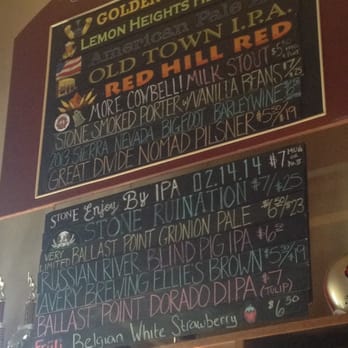 GOLDEN
LEMON HEIGHTS
American Pale
OLD TOWN I.P.A.
RED HILL RED
MORE COWBELL! MILK STOUT
STONE SMOKED PORTER w/VANILLA BEANS $7/
2013 SIERRA NEVADA BIGFOOT BARLEYWINE
GREAT DIVIDE NOMAD PILSNER
STONE Enjoy By IPA 02.14.14 $7 MUG
STONE RUINATION $7/$25
VERY LIMITED BALLAST POINT GRUNION PALE
RUSSIAN RIVER BLIND PIG IPA
AVERY BREWING ELLIES BROWN
BALLAST POINT DORADO DIPA $7 (TULIP)
Früli Belgian White Strawberry $6.50